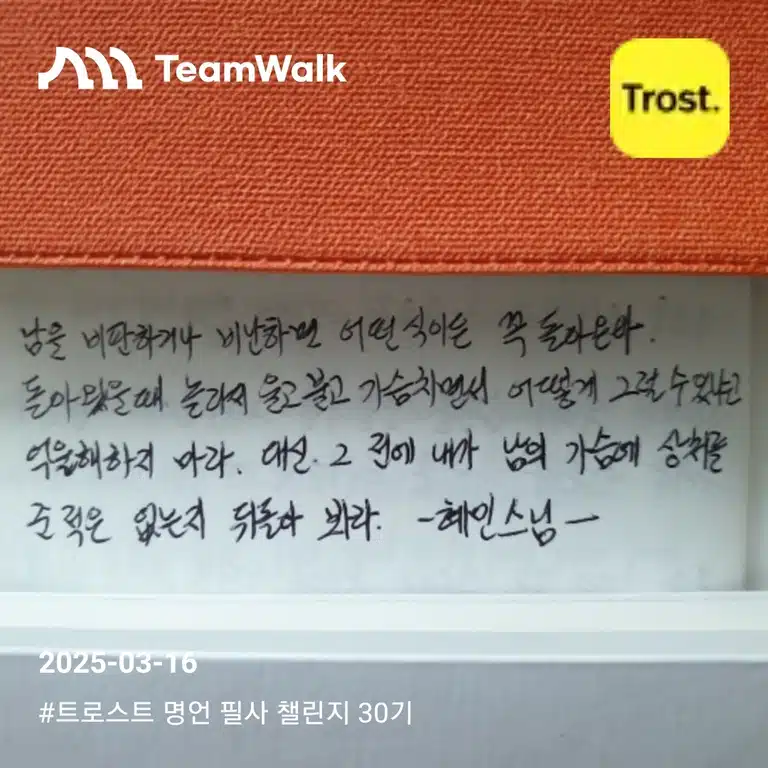 TeamWalk
Trost.
남을 비판하거나 비난하면 어떤식이든 꼭 돌아온다.
돌아왔을때 놀라서 울고불고 가슴치면서 어떻게 그럴 수 있냐고
억울해하지 마라. 대신. 그 전에 내가 남의 가슴에 상처를
준 적은 없는지 뒤돌아 봐라. -혜민스님-
2025-03-16
#트로스트 명언 필사 챌린지 30기